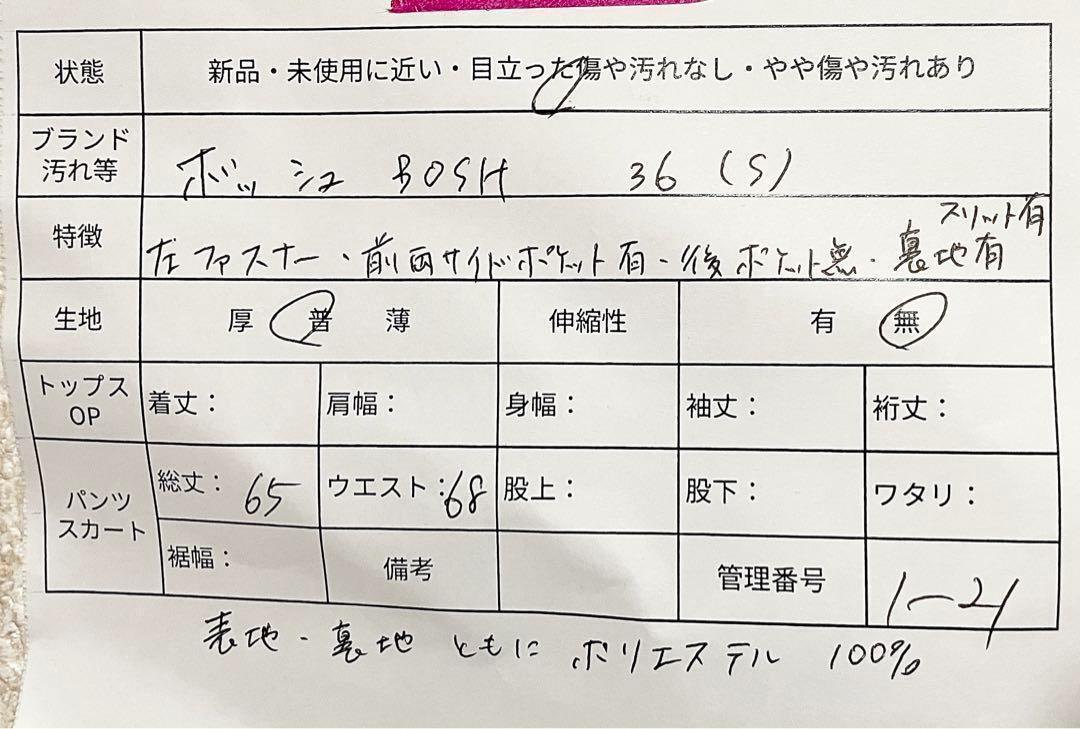 状態 新品・未使用に近い・目立った傷や汚れなし・やや傷や汚れあり
ブランド
汚れ等
ボッシュ BOSH 36 (S)
スリット有
特徴 左ファスナー・前両サイドポケット有・後ポケット無・裏地有
生地 厚 普 薄 伸縮性 有 無
トップス
OP
着丈: 肩幅: 身幅: 袖丈: 裄丈:
パンツ
スカート
総丈: 65 ウエスト:68 股上: 股下: ワタリ:
裾幅: 備考 管理番号 1-21
表地・裏地 ともに ポリエステル 100%